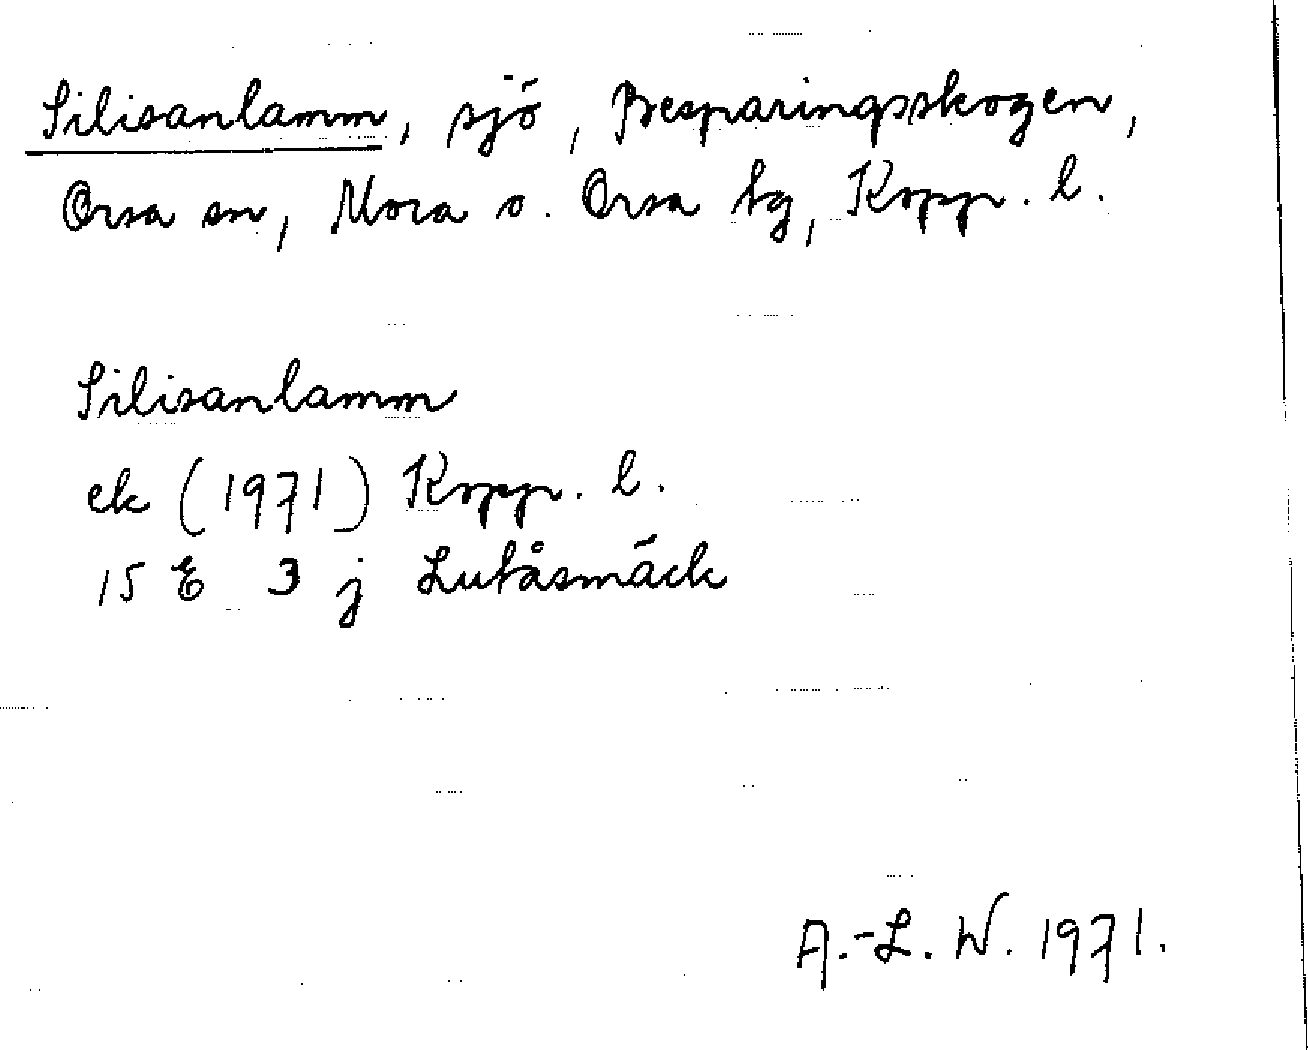 Silisanlamm, sjö, Besparingsskogen,
Orsa sn, Mora o. Orsa tg, Kopp. l.
Silisanlamm
ek (1971) Kopp. l.
15 E 3 j Lutåsmäck
A.-L. W. 1971.